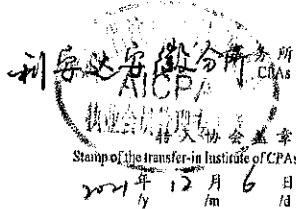 利安达安徽分所 务所
CPAs
转入协会盖章
Stamp of the transfer-in Institute of CPAs
2021年 12月 6日
/y /m /d